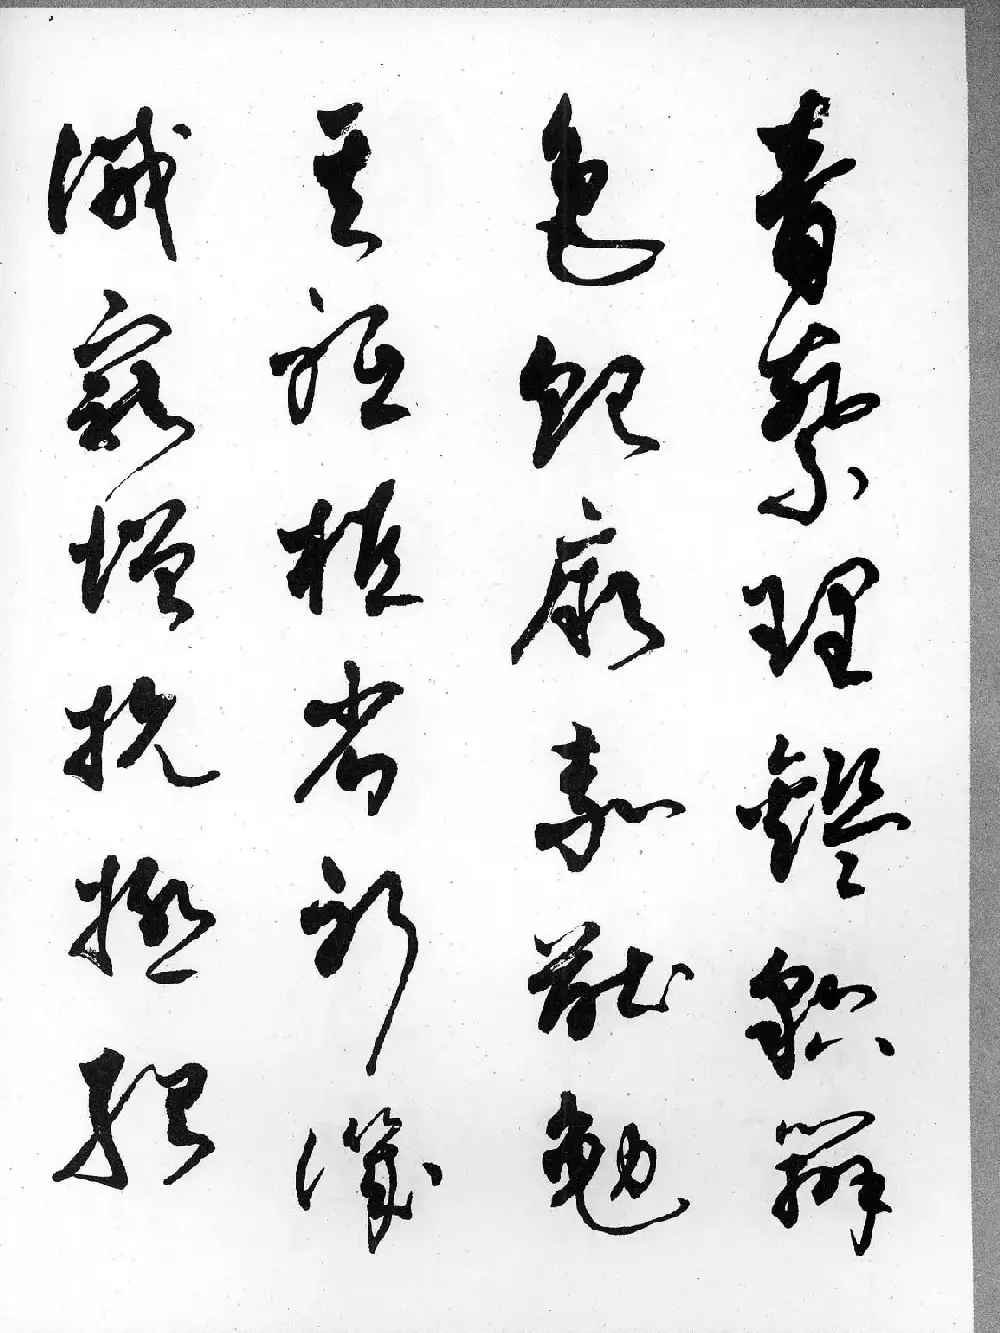 音察理鑑貌辨
色貽厥嘉猷勉
其祗植省躬譏
誡寵增抗極殆